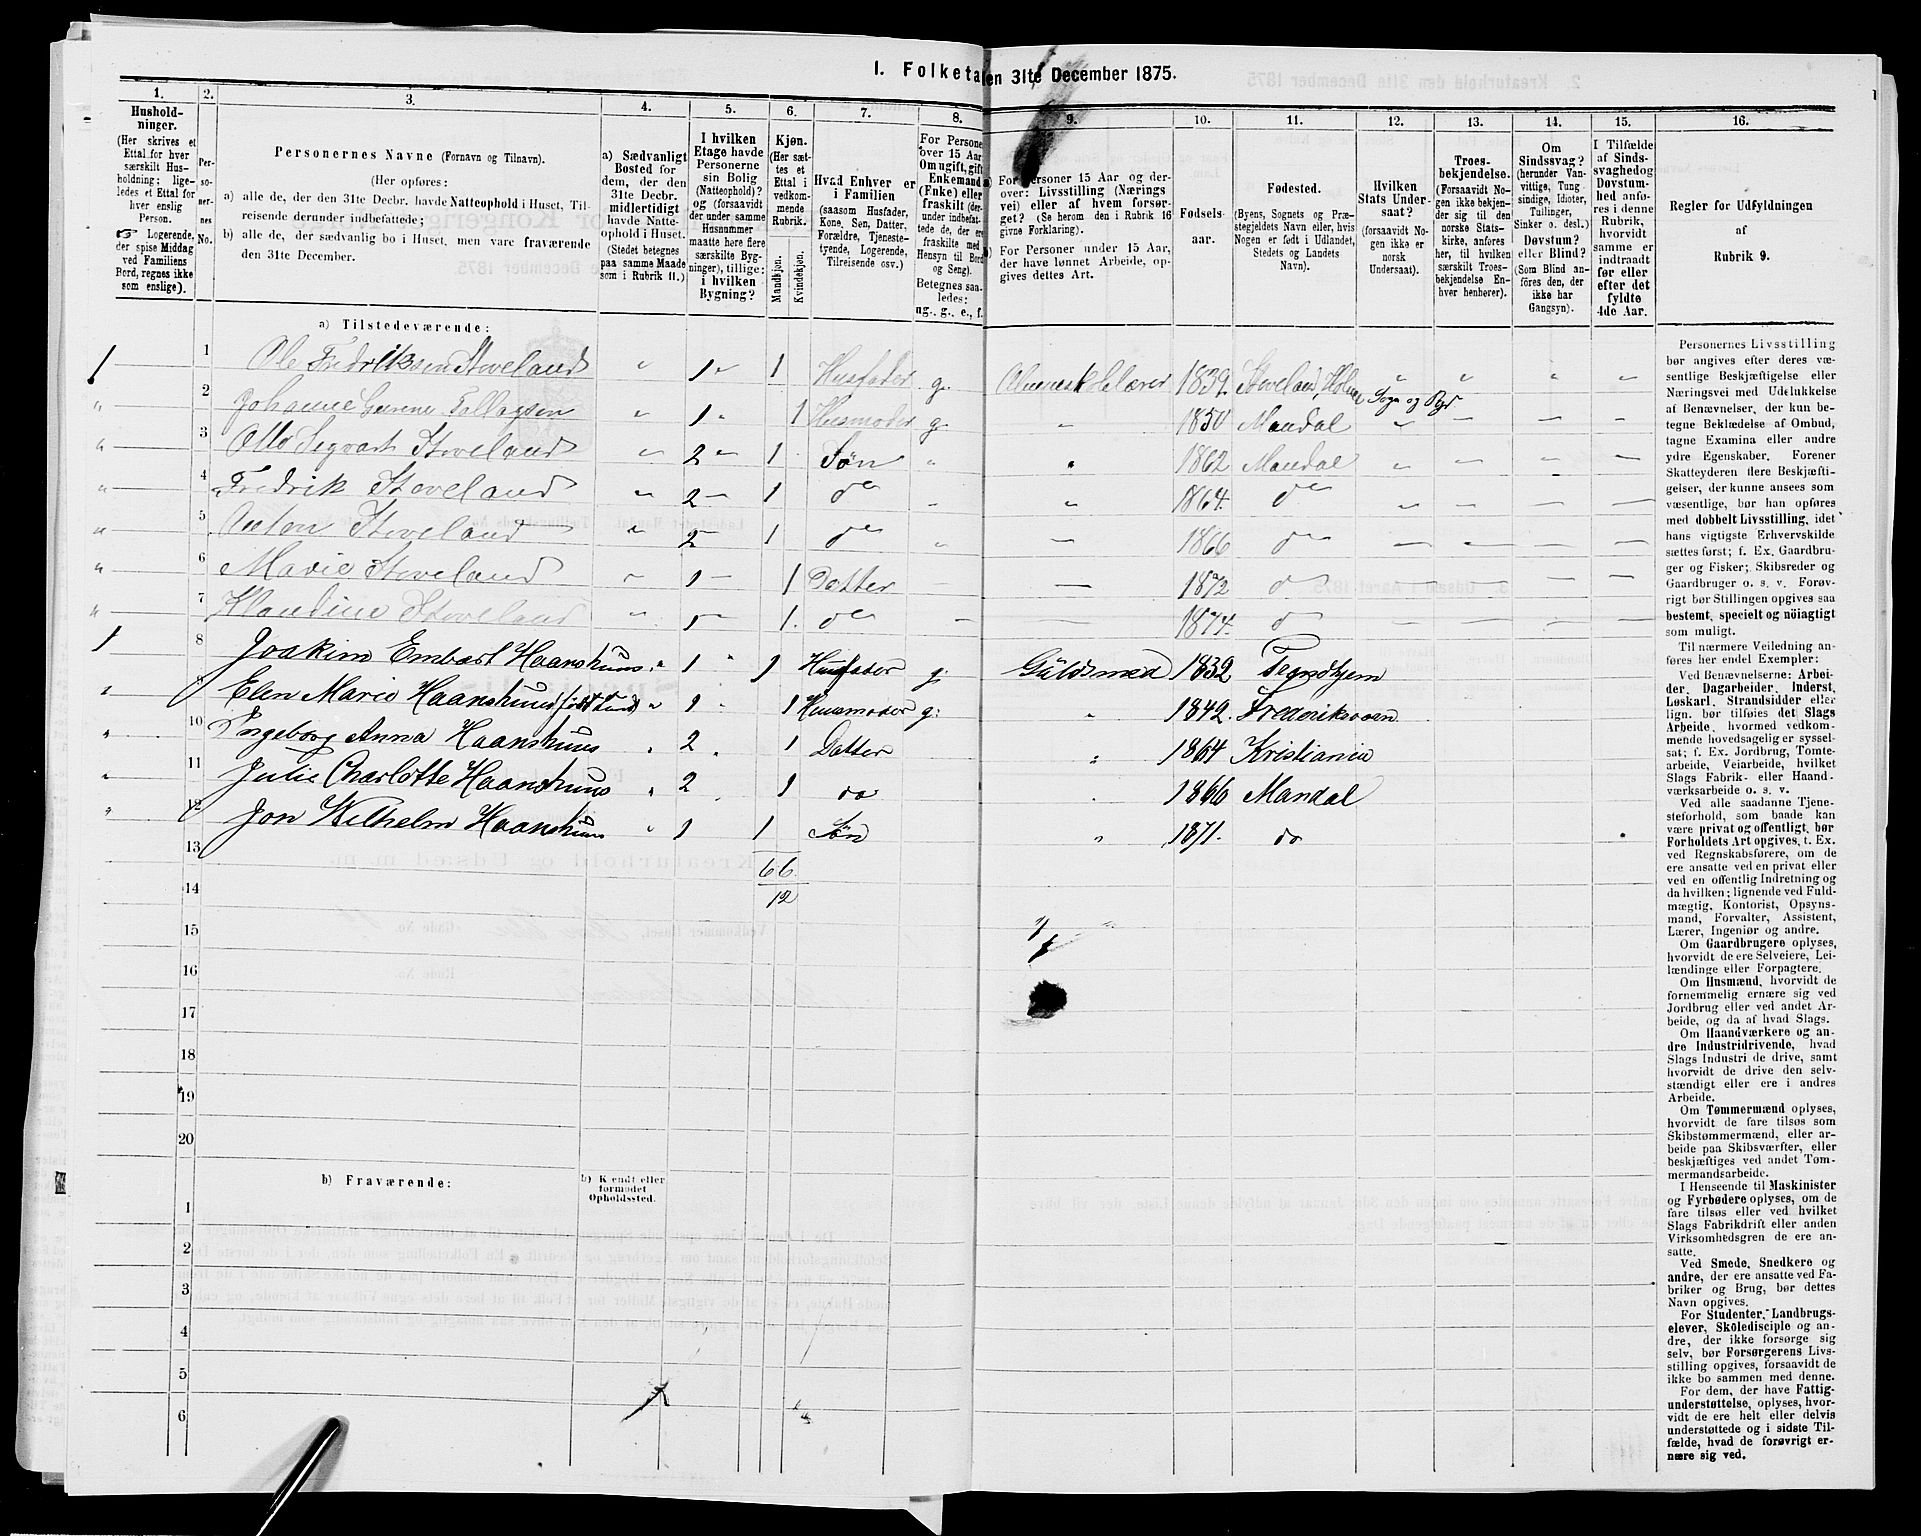 1. Folketalen 31te December 1875.
1. 2. 3. 4. 5. 6. 7. 8. 9. 10. 11. 12. 13. 14. 15. 16.
Hushold-
ninger.
(Her skrives et
Ettal for hver
særskilt Hus-
holdning; lige-
ledes et Ettal for
hver enslig
Person.
Logerende,
der spise Middag
ved Familiens
Bord, regnes ikke
som enslige).
Per-
so-
ner-
nes
No.
Personernes Navne (Fornavn og Tilnavn).
(Her opføres:
a) alle de, der den 31te Decbr. havde Natteophold i Huset, Til-
reisende derunder indbefattede;
b) alle de, der sædvanlig bo i Huset, men vare fraværende
den 31te December.
a) Sædvanligt
Bosted for
dem, der den
31te Decbr.
midlertidigt
havde Natte-
ophold i Huset.
(Stedet betegnes
paa samme Maade
som i Rubrik 11.)
I hvilken
Etage havde
Personerne
sin Bolig
(Natteophold)?
og (forsaavidt
der under samme
Husnummer
maatte høre flere
særskilte Byg-
ninger), tillige:
i hvilken
Bygning?
Kjøn.
(Her sæt-
tes et
Ettal i
vedkom-
mende
Rubrik.)
Mandkjøn.
Kvindekjøn.
Hvad Enhver er
i Familien
(saasom Husfader,
Kone, Søn, Datter,
Forældre, Tjeneste-
tyende, Logerende,
Tilreisende osv.)
For Persone
over 15 Aar
Om ugift, gift
Enkemand
(Enke) eller
fraskilt (der-
under indbefat-
tede, de, ere
fraskilte med
Hensyn til Bord
og Seng).
Betegnes saa-
ledes:
ug., g., e., f.
a) For Personer 15 Aar og der-
over: Livsstilling (Nærings
vei) eller af hvem forsør-
get? (Se herom den i Rubrik 16
givne Forklaring).
b) For Personer under 15 Aar,
der have lønnet Arbeide, op-
gives dettes Art.
Fødsels-
aar.
Fødested.
(Byens, Sognets og Præ-
stegjeldets Navn eller, hvis
Nogen er født i Udlandet,
Stedets og Landets
Navn).
Hvilken
Stats Under-
saat?
(forsaavidt No-
gen ikke er
norsk
Undersaat).
Troes-
bekjendelse.
(Forsaavidt No-
gen ikke bekjen-
der sig til den
norske Stats-
kirke, anføres
her, til hvilken
særskilt Troes-
bekjendelse En-
hver henhører).
Om
Sindssvag?
(herunder Van-
vittige, Tung-
sindige, Idioter,
Tullinger,
Sinker o. desl.)
Døvstum?
eller Blind?
(Som Blind an-
føres den, der
ikke har
Gangsyn).
I Tilfælde
af Sinds-
svaghed og
Døvstum-
hed anfø-
res i denne
Rubrik,
hvorvidt
samme er
indtraadt
før eller
efter det
fyldte
4de Aar.
Regler for Udfyldningen
af
Rubrik 9.
a) Tilstedeværende:
1 1 Ole Fredriksen Stoveland " 1 " 1 Husfader g. Almueskolelærer 1839 Stoveland, Holme Sogn og Pgd " " " "
" 2 Johanne Tallagsen " 1 " 1 Husmoder g. " 1850 Mandal " — — —
" 3 Otto Segvart Stoveland " 2 " 1 Søn " " 1862 Mandal " — — —
" 4 Fredrik Stoveland " 2 — 1 do — " 1864. do — — — —
" 5 Anton Stoveland " 2 — 1 do " — 1866 do — — — —
" 6 Marie Stoveland " 1 — 1 Datter — — 1872 do — — — —
" 7 Klaudine Stoveland " 1 — 1. do — — 1874. do — — — —
1 8 Joakim Embart Haanshuus " 1 " 1 Husfader g. Guldsmed 1832 Trondhjem
" 9 Elen Marie Haanshuus (født Lund) " 1 " 1 Husmoder g. " 1842. Frederiksværn
" 10 Ingeborg Anna Haanshuus " 2 " 1 Datter " 1864 Kristiania
" 11 Julie Charlotte Haanshuus " 2 " 1 do " 1866 Mandal
" 12 Jon Wilhelm Haanshuus " 1 1 Søn " 1871. do
13 6 6
14 12
15
16
17
18
19
20
b) Fraværende:
b) Kjendt eller
formodet
Opholdssted.
1
2
3
4
5
6
Personernes Livsstilling
bør angives efter deres væ-
sentlige Beskjæftigelse eller
Næringsvei med Udelukkelse
af Benævnelser, der kun be-
tegne Beklædelse af Ombud,
tagne Examina eller andre
ydre Egenskaber. Forener
Skatteyderen flere Beskjæfti-
gelser, der kunne ansees som
væsentlige, bør han opføres
med dobbelt Livsstilling, idet
hans vigtigste Erhvervskilde
sættes først; f. Ex. Gaardbru-
ger og Fisker; Skibsreder og
Gaardbruger o. s. v. Forøv-
rigt bør Stillingen opgives saa
bestemt, specielt og nöiagtigt
som muligt.
Til nærmere Veiledning an-
føres her endel Exempler:
Ved Benævnelserne: Arbei-
der, Dagarbeider, Inderst,
Løskarl, Strandsidder eller
lign. bør tilføies det Slags
Arbeide, hvormed vedkom-
mende hovedsagelig er syssel-
sat; f. Ex. Jordbrug, Tomte-
arbeide, Veiarbeide, hvilket
Slags Fabrik- eller Haand-
værksarbeide o. s. v.
Ved alle saadanne Tjene-
steforhold, som baade kan
være privat og offentligt, bør
Forholdets Art opgives, t. Ex.
ved Regnskabsførere, om de
ere ansatte ved en privat eller
ved en offentlig Indretning og
da hvilken; lignende ved Fuld-
mægtig, Kontorist, Opsyns-
mand, Forvalter, Assistent,
Lærer, Ingeniør og andre.
Om Gaardbrugere oplyses,
hvorvidt de ere Selveiere, Lei-
lændinge eller Forpagtere.
Om Husmænd, hvorvidt de
fornemmelig ernære sig ved
Jordbrug eller ved andet Ar-
beide, og da af hvad Slags.
Om Haandværkere og an-
dre Industridrivende, hvad
Slags Industri de drive, samt
hvorvidt de drive den selv-
stændigt eller ere i andres
Arbeide.
Om Tømmermænd oplyses,
hvorvidt de fare tilsøs som
Skibstømmermænd, eller ar-
beide paa Skibsværfter, eller
beskjæftiges ved andet Tøm-
mermandsarbeide.
I Henseende til Maskinister
og Fyrbødere oplyses, om de
fare tilsøs eller ved hvilket
Slags Fabrikdrift eller anden
Virksomhedsgren de ere an-
satte.
Ved Smede, Snedkere og
andre, der ere ansatte ved Fa-
briker og Brug, bør dettes
Navn opgives.
For Studenter, Landbrugs-
elever, Skoledisciple og an-
dre, der ikke forsørge sig
selv, bør Forsørgerens Livs-
stilling opgives, forsaavidt de
ikke bo sammen med denne.
For dem, der have Fattig-
understøttelse, oplyses, hvor-
vidt de ere helt eller delvis
understøttede og i sidste Til-
fælde, hvad de forøvrigt er-
nære sig ved.